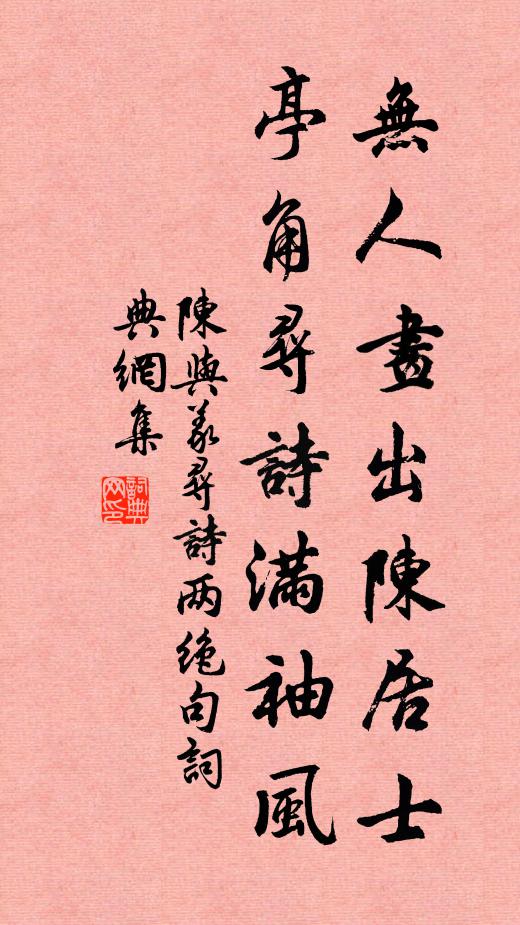 無人畫出陳居士
亭角尋詩滿袖風
陳與義尋詩两絶句詞
典網集
詞典網印